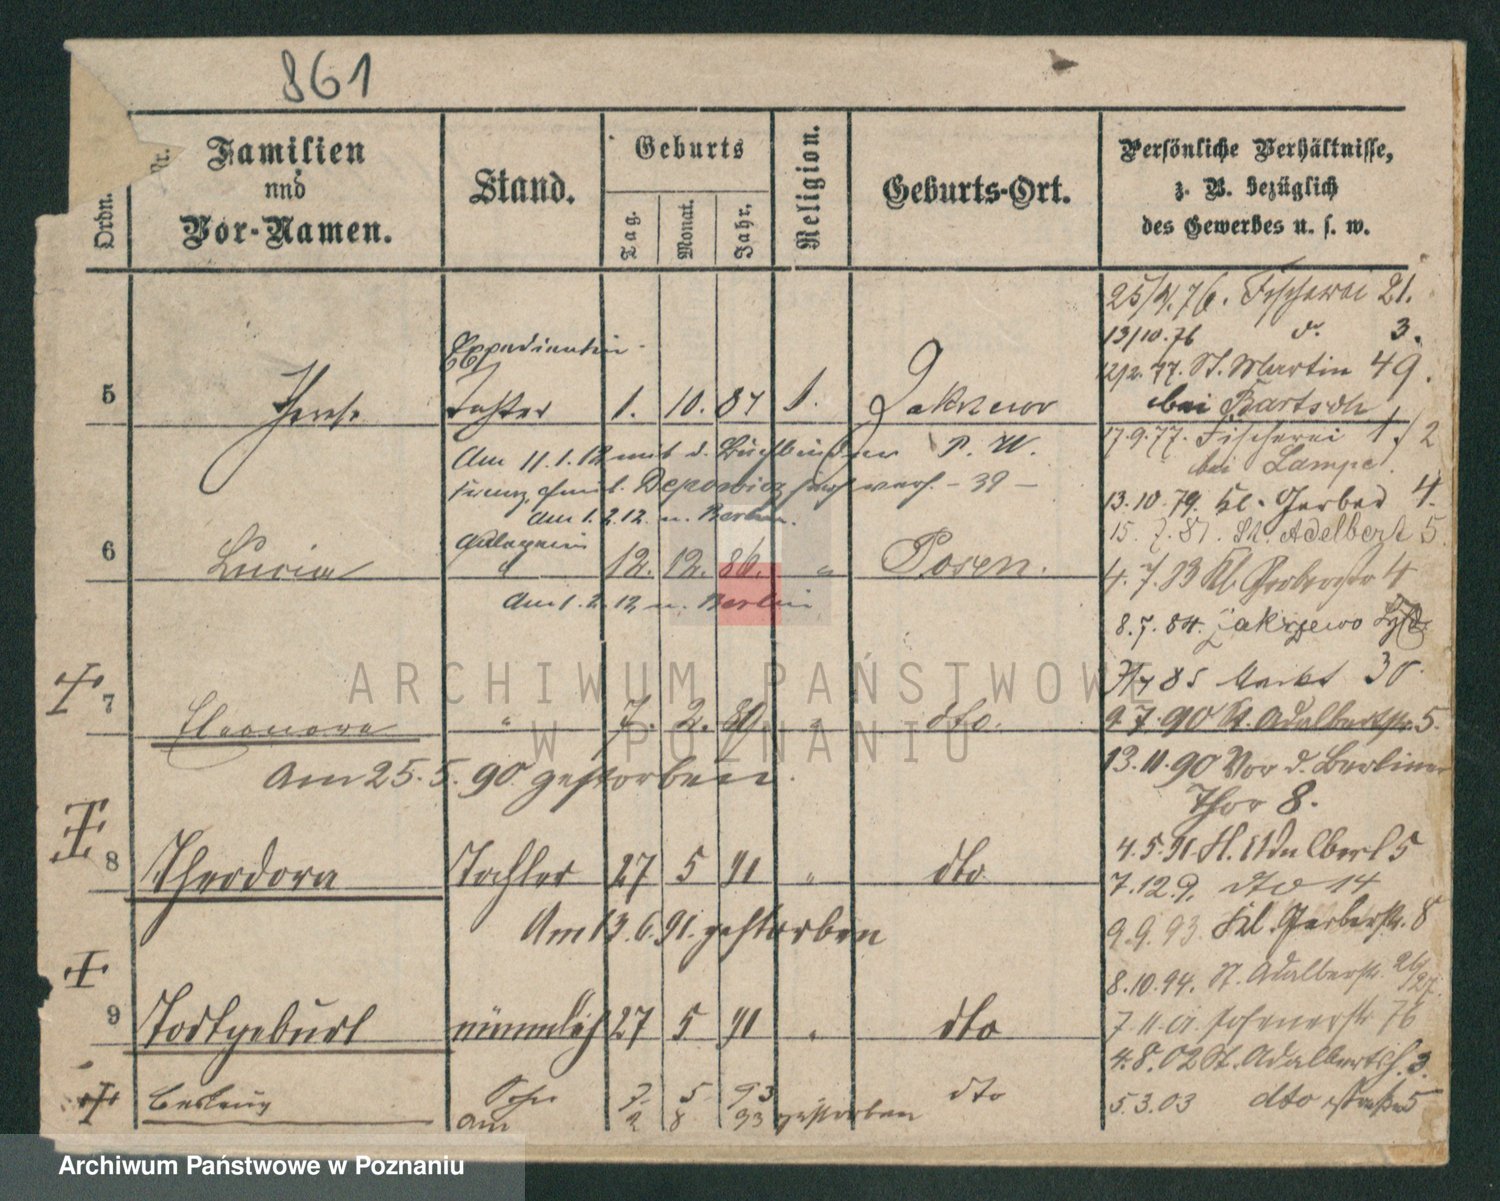 861
Ordn. Nr.
Familien
und
Vor-Namen.
Stand.
Geburts
Tag.
Monat.
Jahr.
Religion.
Geburts-Ort.
Persönliche Verhältnisse,
z. B. bezüglich
des Gewerbes u. s. w.
25/4.76. Fischerei 21.
13/10.76 d. 3.
12/2.77. St. Martin 49.
bei Bartsch
Expedientin
5 Therese Tochter 1. 10. 87 Zakrzewo
17.9.77. Fischerei 1/2
bei Lampe.
Am 11.1.12 mit d. Buchbinder P. W.
Franz Emil Deposicz verh. - 39 -
Am 1.2.12. n. Berlin.
13.10.79. Kl. Gerber 4.
15.7.81. St. Adelbert 5.
6 Lucia " 12. 12. 86. " Posen.
4.7.83 Kl. Gerberstr 4
Am 1.2.12 n. Berlin
8.7.84. Zakrzewo
85 Markt 30.
7 Eleonora " 7. 2. 89 " dto.
9.7.90 St. Adalbertstr. 5.
Am 25.5.90 gestorben.
13.11.90 Vor d. Berliner
Thor 8.
4.5.91 St. Adalbert 5
8 Theodora Tochter 27 5 91 " dto
7.12.9. dto 14
Am 13.6.91. gestorben
9.9.93. Kl. Gerberstr. 8
8.10.94. St. Adalbertstr. 26/27.
9 Todtgeburt nämmlich 27 5 91 " dto
76
4.8.02 St. Adalbertstr. 3.
Sohn 7. 5 93 dto
5.3.03 dto straße 5
am 2 8 93 gestorben
ARCHIWUM PAŃSTWOWE
W POZNANIU
Archiwum Państwowe w Poznaniu